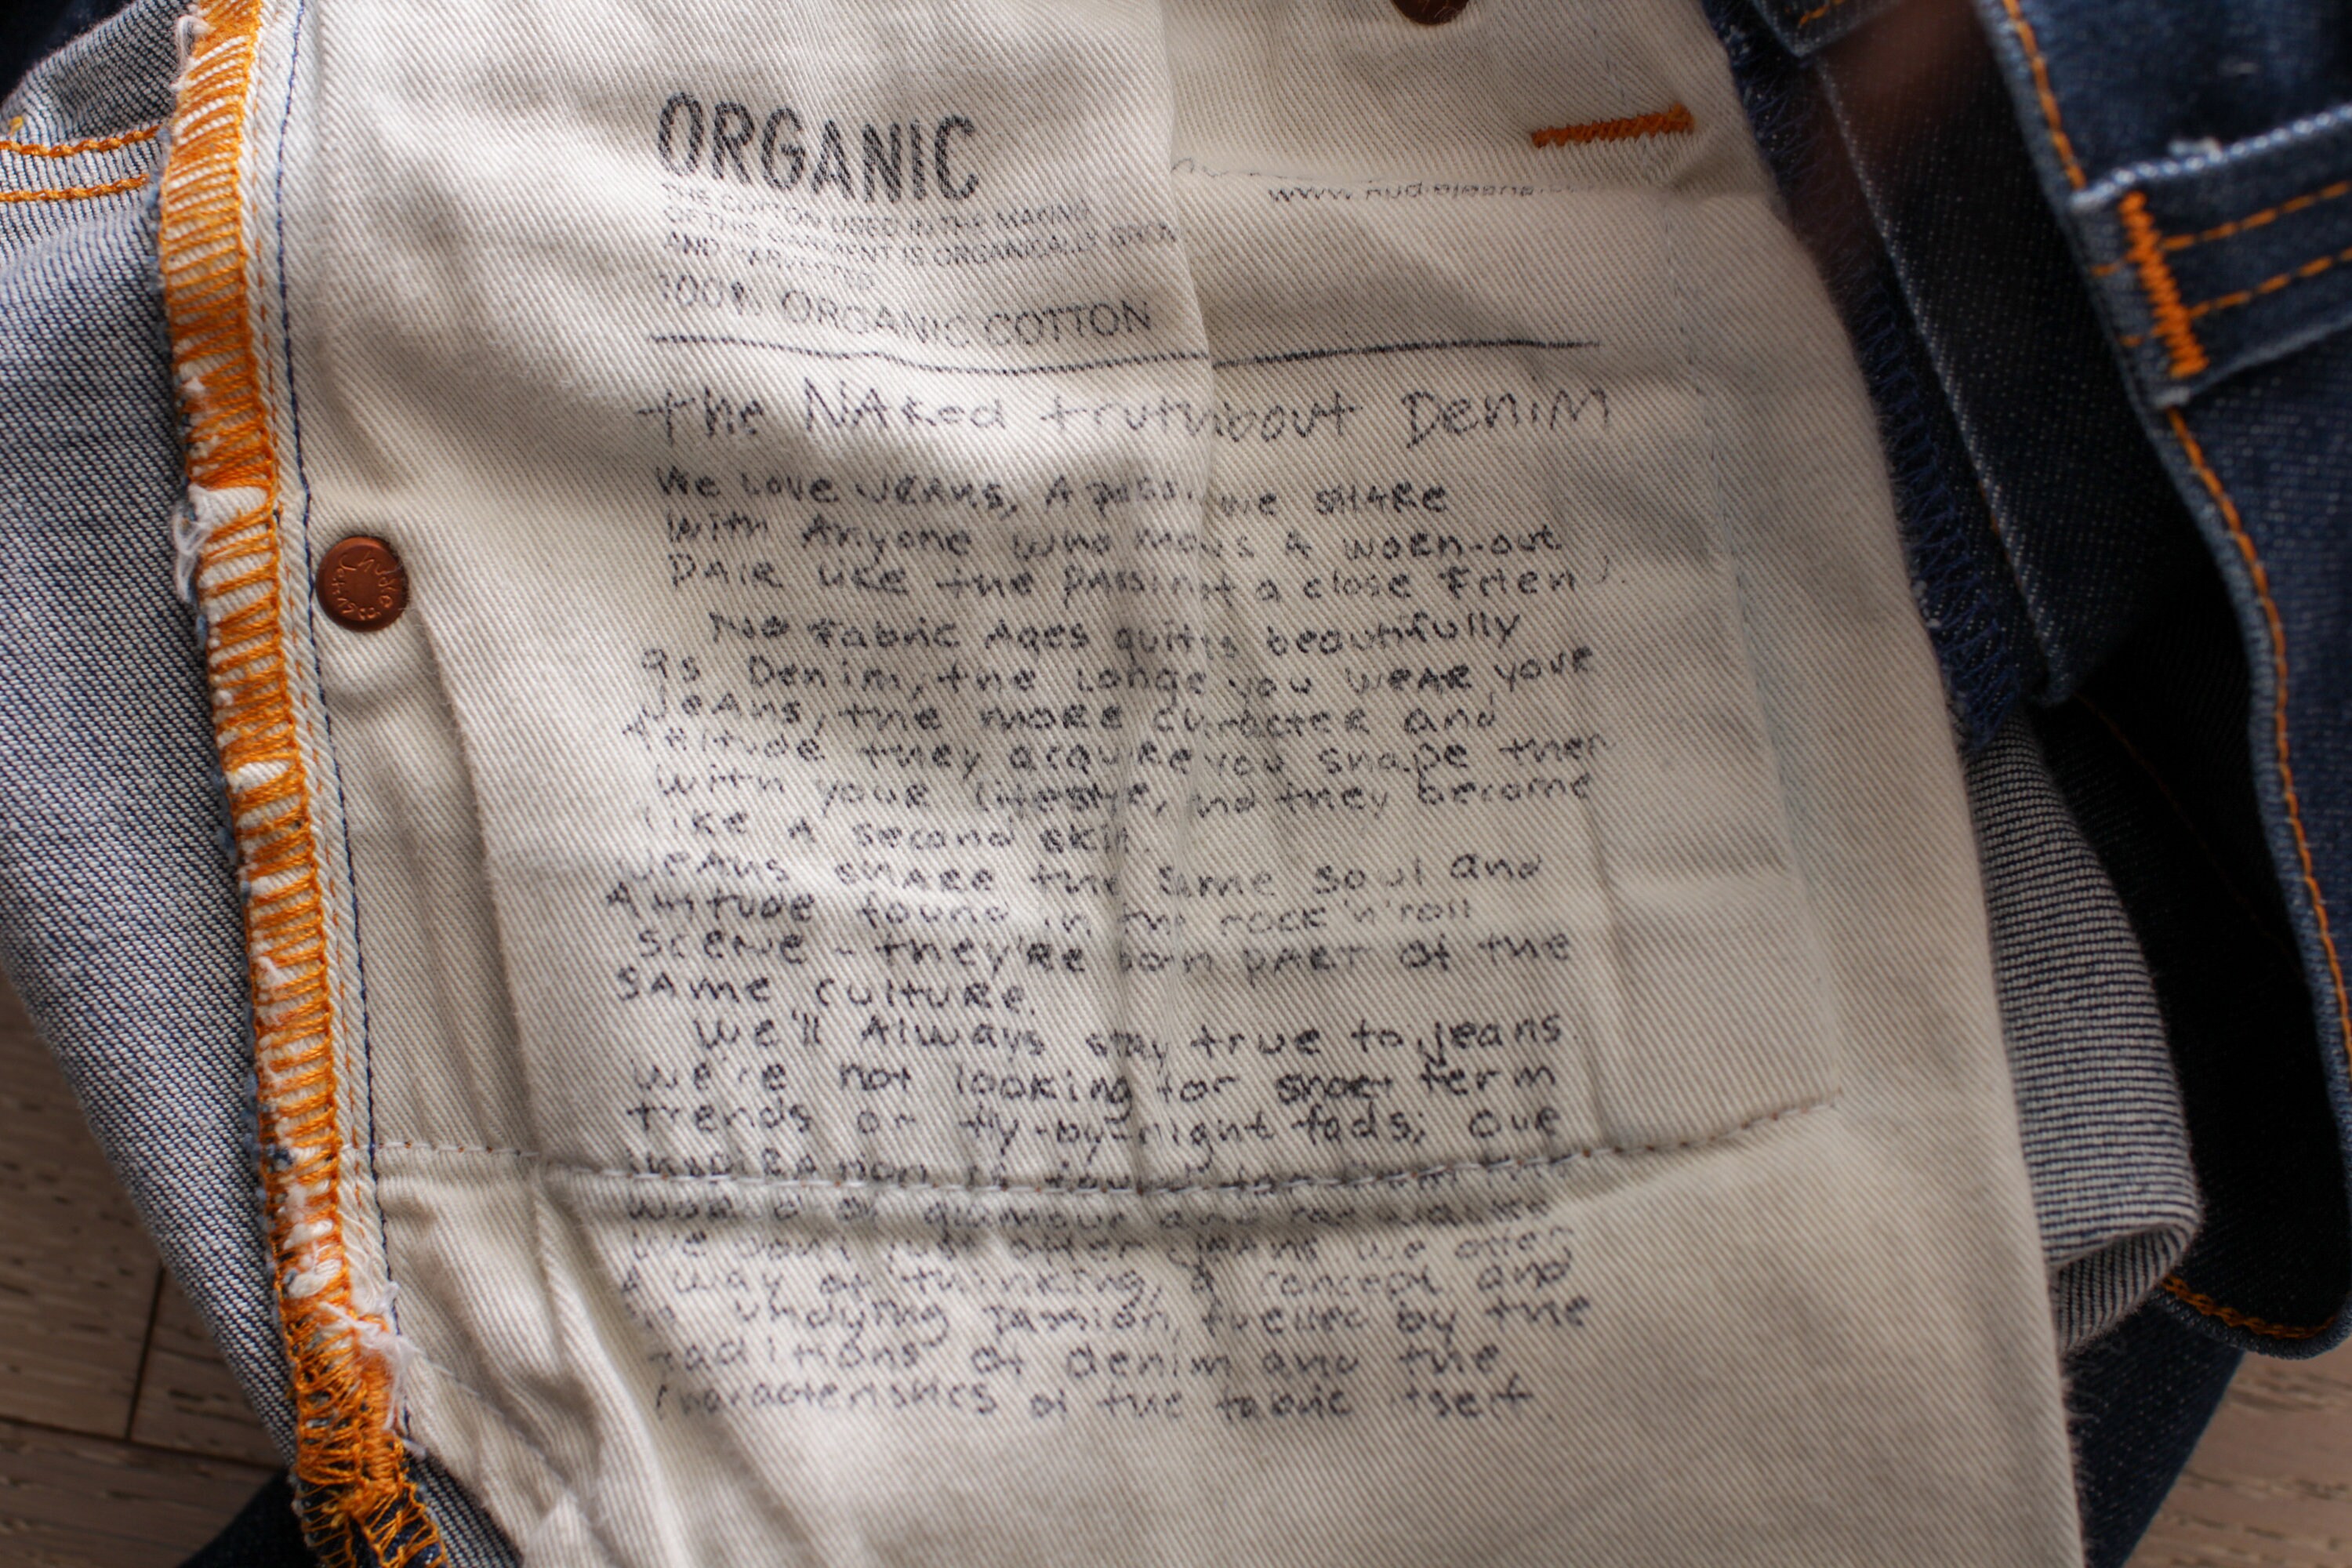 ORGANIC
THE COTTON USED IN THE MAKING
OF THIS GARMENT IS ORGANICALLY GROWN
AND HARVESTED
100% ORGANIC COTTON
the NAKed truth about Denim
We Love JEANS, A we SHARE
With Anyone who a worn-out
PAIR LIKE the a close Frien
No Fabric Ages quite beautifully
as Denim, the longe you WEAR your
JEANS, the more character and
Attitude they acquire you shape them
with your lifestyle, and they become
like A second skin.
JEANS SHARE the same soul and
Attitude found in the rock'n'roll
scene - they're part of the
SAME CULTURE.
We'll Always stay true to jeans.
We're not looking for short term
trends or fly-by-night fads; our
world of glamour and
We don't just offer jeans we offer
A way of thinking, a concept and
undying passion, fuelled by the
traditions of denim and the
characteristics of the fabric itself.
Nudie Jeans